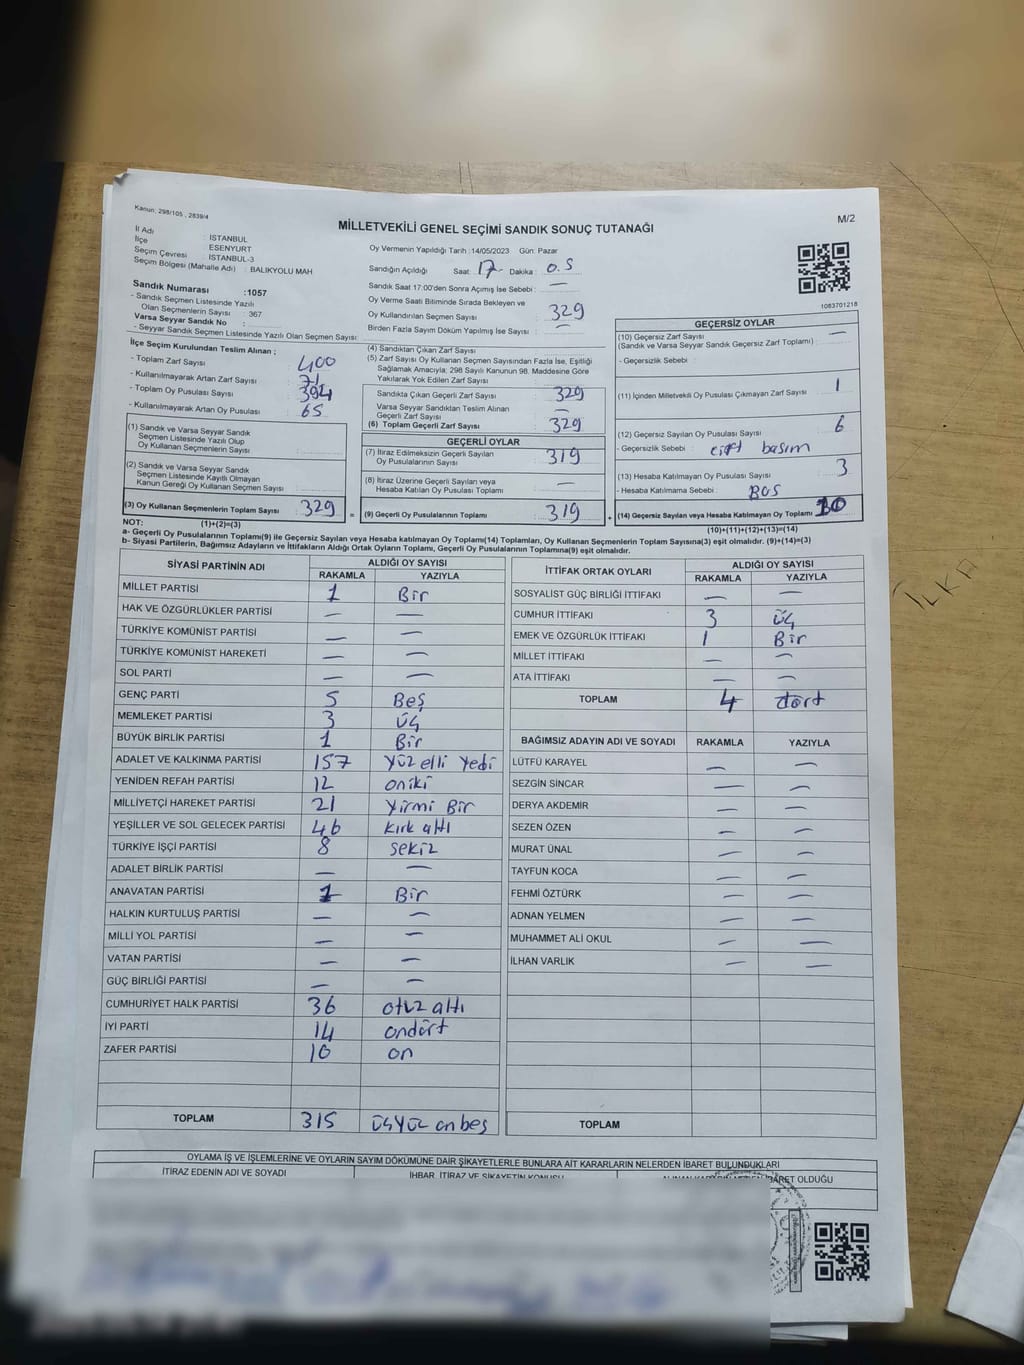 Kanun, 298/105 , 2839/4
MİLLETVEKİLİ GENEL SEÇİMİ SANDIK SONUÇ TUTANAĞI
M/2
İl Adı : İSTANBUL
İlçe : ESENYURT
Seçim Çevresi : İSTANBUL-3
Seçim Bölgesi (Mahalle Adı) : BALIKYOLU MAH
Sandık Numarası :1057
- Sandık Seçmen Listesinde Yazılı
Olan Seçmenlerin Sayısı : 367
Varsa Seyyar Sandık No :
- Seyyar Sandık Seçmen Listesinde Yazılı Olan Seçmen Sayısı:
Oy Vermenin Yapıldığı Tarih :14/05/2023 Gün: Pazar
Sandığın Açıldığı Saat: 17 Dakika: 05
Sandık Saat 17:00'den Sonra Açımış İse Sebebi : —
Oy Verme Saati Bitiminde Sırada Bekleyen ve
Oy Kullandırılan Seçmen Sayısı : 329
Birden Fazla Sayım Döküm Yapılmış İse Sayısı : —
1083701218
İlçe Seçim Kurulundan Teslim Alınan ;
- Toplam Zarf Sayısı : 400
- Kullanılmayarak Artan Zarf Sayısı : 71
- Toplam Oy Pusulası Sayısı : 394
- Kullanılmayarak Artan Oy Pusulası : 65
(1) Sandık ve Varsa Seyyar Sandık
Seçmen Listesinde Yazılı Olup
Oy Kullanan Seçmenlerin Sayısı :
(2) Sandık ve Varsa Seyyar Sandık
Seçmen Listesinde Kayıtlı Olmayan
Kanun Gereği Oy Kullanan Seçmen Sayısı :
(3) Oy Kullanan Seçmenlerin Toplam Sayısı : 329
(1)+(2)=(3)
(4) Sandıktan Çıkan Zarf Sayısı
(5) Zarf Sayısı Oy Kullanan Seçmen Sayısından Fazla İse, Eşitliği
Sağlamak Amacıyla; 298 Sayılı Kanunun 98. Maddesine Göre
Yakılarak Yok Edilen Zarf Sayısı :
Sandıkta Çıkan Geçerli Zarf Sayısı : 329
Varsa Seyyar Sandıktan Teslim Alınan
Geçerli Zarf Sayısı : —
(6) Toplam Geçerli Zarf Sayısı : 329
GEÇERLİ OYLAR
(7) İtiraz Edilmeksizin Geçerli Sayılan
Oy Pusulalarının Sayısı : 319
(8) İtiraz Üzerine Geçerli Sayılan veya
Hesaba Katılan Oy Pusulası Toplamı : —
= (9) Geçerli Oy Pusulalarının Toplamı : 319
GEÇERSİZ OYLAR
(10) Geçersiz Zarf Sayısı
(Sandık ve Varsa Seyyar Sandık Geçersiz Zarf Toplamı) : —
- Geçersizlik Sebebi :
(11) İçinden Milletvekili Oy Pusulası Çıkmayan Zarf Sayısı : 1
(12) Geçersiz Sayılan Oy Pusulası Sayısı : 6
- Geçersizlik Sebebi : çift basım
(13) Hesaba Katılmayan Oy Pusulası Sayısı : 3
- Hesaba Katılmama Sebebi : BOS
+ (14) Geçersiz Sayılan veya Hesaba Katılmayan Oy Toplamı : 10
(10)+(11)+(12)+(13)=(14)
NOT:
a- Geçerli Oy Pusulalarının Toplamı(9) ile Geçersiz Sayılan veya Hesaba Katılmayan Oy Toplamı(14) Toplamları, Oy Kullanan Seçmenlerin Toplam Sayısına(3) eşit olmalıdır. (9)+(14)=(3)
b- Siyasi Partilerin, Bağımsız Adayların ve İttifakların Aldığı Ortak Oyların Toplamı, Geçerli Oy Pusulalarının Toplamına(9) eşit olmalıdır.
SİYASİ PARTİNİN ADI ALDIĞI OY SAYISI
RAKAMLA YAZIYLA
MİLLET PARTİSİ 1 Bir
HAK VE ÖZGÜRLÜKLER PARTİSİ — —
TÜRKİYE KOMÜNİST PARTİSİ — —
TÜRKİYE KOMÜNİST HAREKETİ — —
SOL PARTİ — —
GENÇ PARTİ 5 Beş
MEMLEKET PARTİSİ 3 üç
BÜYÜK BİRLİK PARTİSİ 1 Bir
ADALET VE KALKINMA PARTİSİ 157 yüz elli yedi
YENİDEN REFAH PARTİSİ 12 oniki
MİLLİYETÇİ HAREKET PARTİSİ 21 yirmi Bir
YEŞİLLER VE SOL GELECEK PARTİSİ 46 kırk altı
TÜRKİYE İŞÇİ PARTİSİ 8 sekiz
ADALET BİRLİK PARTİSİ — —
ANAVATAN PARTİSİ 1 Bir
HALKIN KURTULUŞ PARTİSİ — —
MİLLİ YOL PARTİSİ — —
VATAN PARTİSİ — —
GÜÇ BİRLİĞİ PARTİSİ — —
CUMHURİYET HALK PARTİSİ 36 otuz altı
İYİ PARTİ 14 ondört
ZAFER PARTİSİ 10 on
TOPLAM 315 üçyüz onbeş
İTTİFAK ORTAK OYLARI ALDIĞI OY SAYISI
RAKAMLA YAZIYLA
SOSYALİST GÜÇ BİRLİĞİ İTTİFAKI — —
CUMHUR İTTİFAKI 3 üç
EMEK VE ÖZGÜRLÜK İTTİFAKI 1 Bir
MİLLET İTTİFAKI — —
ATA İTTİFAKI — —
TOPLAM 4 dört
BAĞIMSIZ ADAYIN ADI VE SOYADI RAKAMLA YAZIYLA
LÜTFÜ KARAYEL — —
SEZGİN SİNCAR — —
DERYA AKDEMİR — —
SEZEN ÖZEN — —
MURAT ÜNAL — —
TAYFUN KOCA — —
FEHMİ ÖZTÜRK — —
ADNAN YELMEN — —
MUHAMMET ALİ OKUL — —
İLHAN VARLIK — —
TOPLAM
OYLAMA İŞ VE İŞLEMLERİNE VE OYLARIN SAYIM DÖKÜMÜNE DAİR ŞİKAYETLERLE BUNLARA AİT KARARLARIN NELERDEN İBARET BULUNDUKLARI
İTİRAZ EDENİN ADI VE SOYADI İHBAR, İTİRAZ VE ŞİKAYETİN KONUSU İBARET OLDUĞU
İLKA